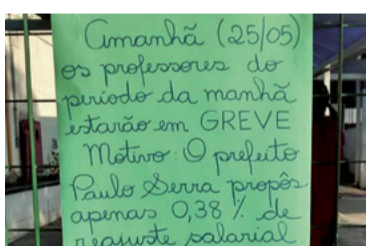 Amanhã (25/05)
os professores do
período da manhã
estarão em GREVE
Motivo: O prefeito
Paulo Serra propôs
apenas 0,38 % de
reajuste salarial